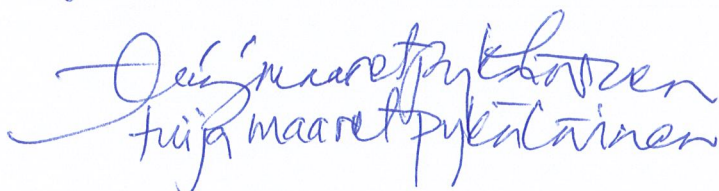 Tuija maaret pykäläinen
tuija maaret pykäläinen